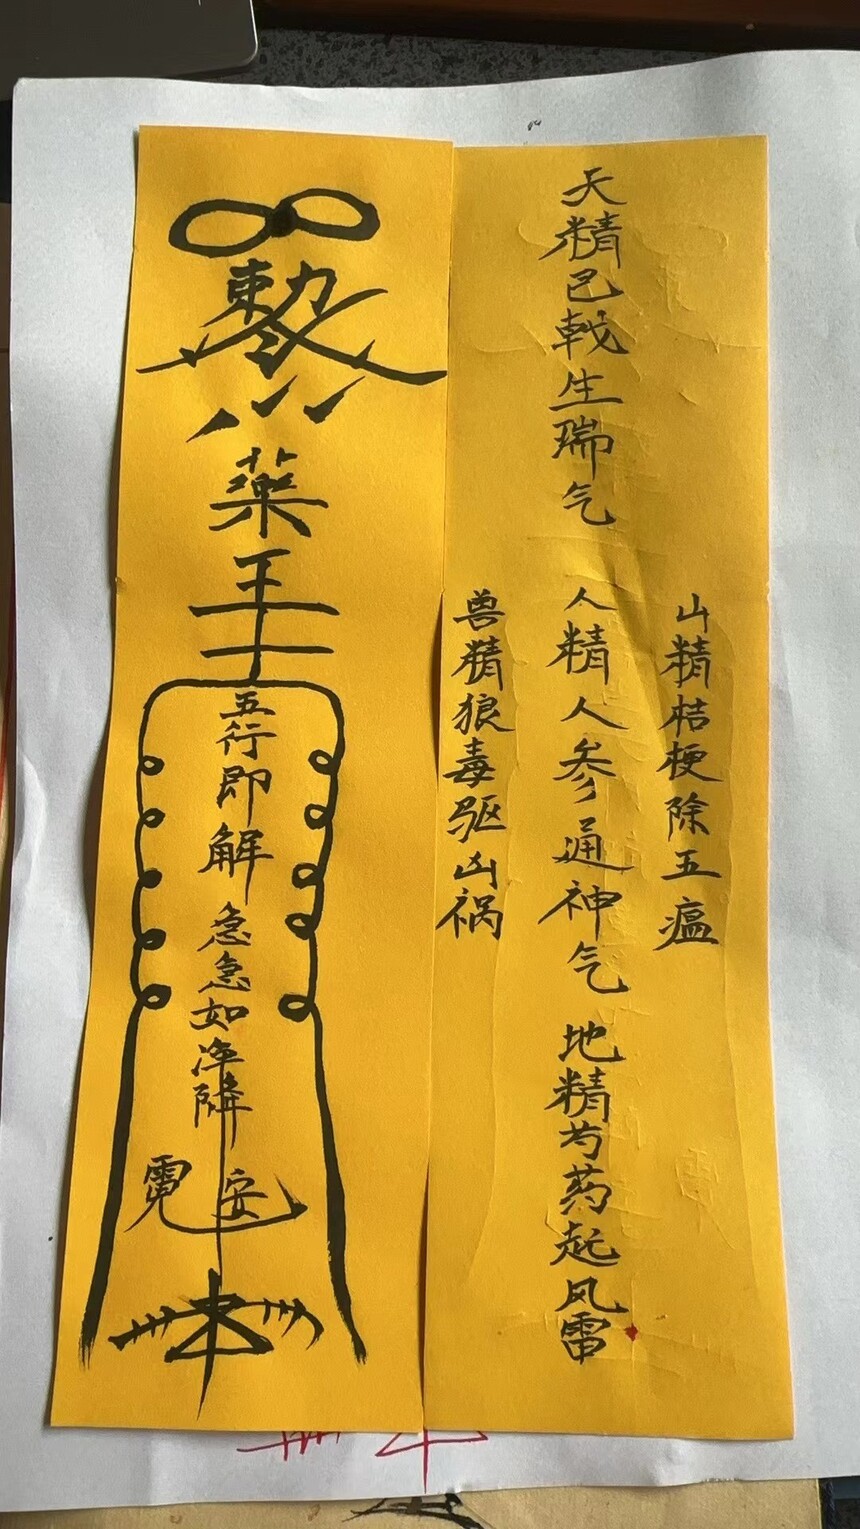 天精巴戟生瑞气
山精桔梗除五瘟
人精人参通神气
兽精狼毒驱凶祸
地精芍药起风雷
藥王
五行即解
急急如
安